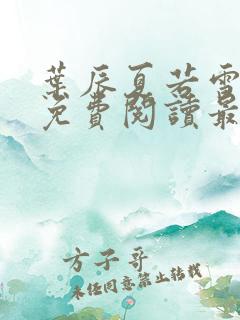 葉辰夏若雪
免費閱讀最
方子哥
未经同意禁止转载